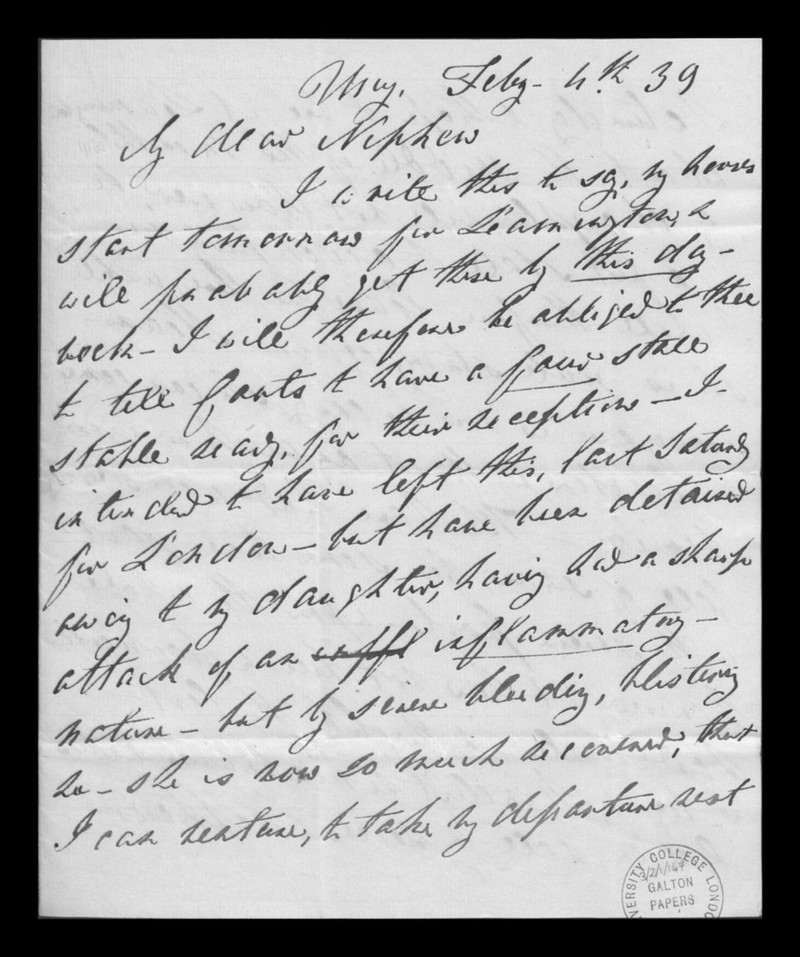 Ury, Feby - 4th 39
My dear Nephew
I write this to say, my horses
start tomorrow for Leamington, &
will probably get there by this day -
week - I will therefore be obliged to thee
to tell to have a four stall
stable ready, for their reception - I -
intended to have left this, last Saturdy
for London - but have been detained
owing to my daughter, having had a sharp
attack of an inffl inflammatory -
nature - but by severe bleeding, blistering
&c - she is now so much recovered, that
I can venture, to take my departure next
UNIVERSITY COLLEGE LONDON
GALTON
PAPERS